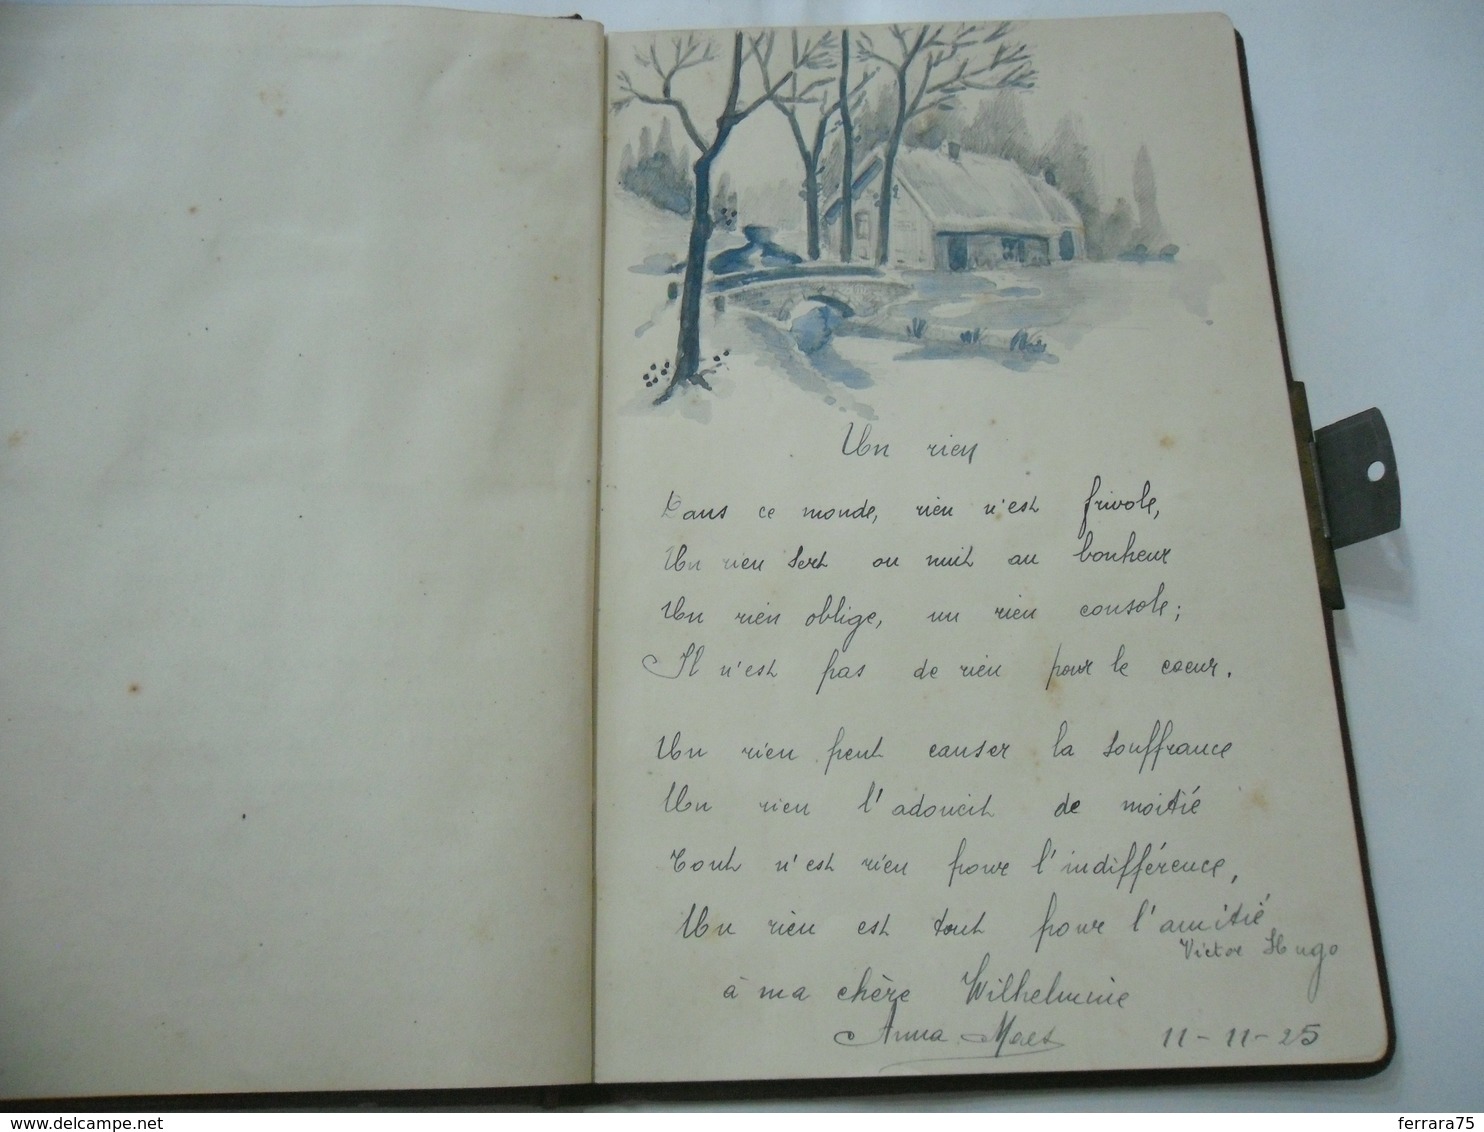 Un rien
Dans ce monde, rien n'est frivole,
Un rien sert ou nuit au bonheur
Un rien oblige, un rien console;
Il n'est pas de rien pour le coeur.
Un rien peut causer la souffrance
Un rien l'adoucit de moitié
Tout n'est rien pour l'indifférence,
Un rien est tout pour l'amitié
Victor Hugo
à ma chère Wilhelmine
Anna Maes 11-11-25
delcampe.net
ferrara75